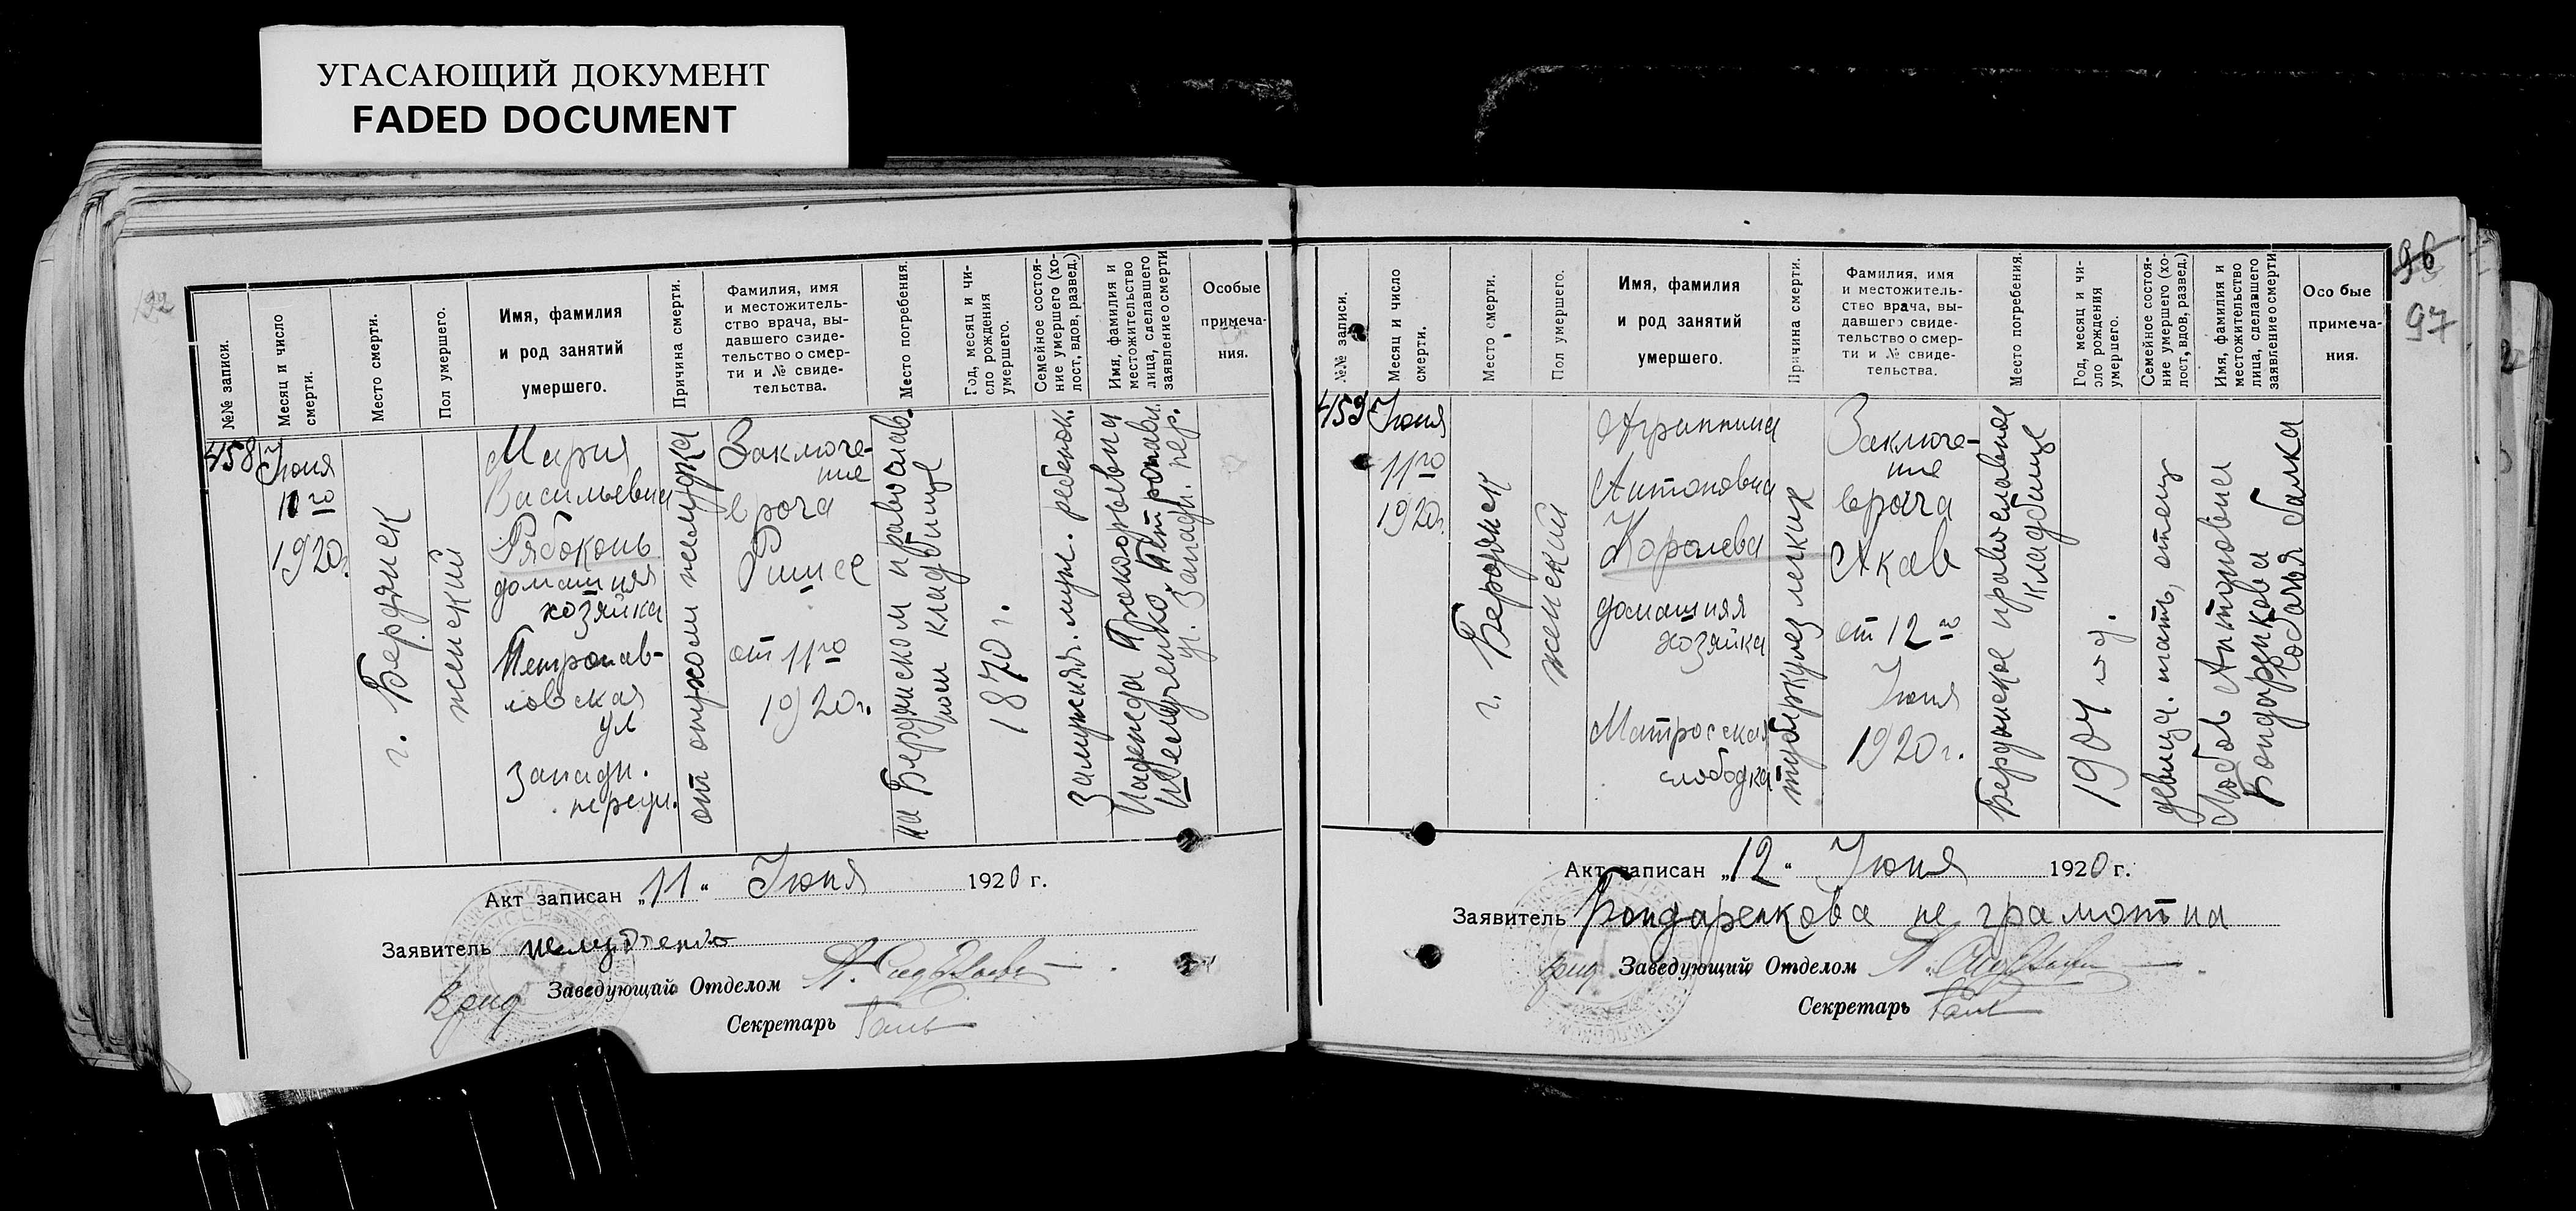 УГАСАЮЩИЙ ДОКУМЕНТ
FADED DOCUMENT
№№ записи.
Месяц и число
смерти.
Место смерти.
Пол умершего.
Имя, фамилия
и род занятий
умершего.
Причина смерти.
Фамилия, имя
и местожитель-
ство врача, вы-
давшего свиде-
тельство о смер-
ти и № свиде-
тельства.
Место погребения.
Год, месяц и чи-
сло рождения
умершего.
Семейное состоя-
ние умершего (хо-
лост, вдов, развед.)
Имя, фамилия и
местожительство
лица, сделавшего
заявление о смерти
Особые
примеча-
ния.
458
Июня
11го
1920г.
г. Бердянск
женский
Мария
Васильевна
Рябоконь
домашняя
хозяйка
Петропав-
ловская
ул
западн.
переул.
от опухоли желудка
Заключе-
ние
врача
от 11го
1920г.
на Бердянском православ-
ном кладбище
1870 г.
замужняя. муж. ребенок.
Надежда Прокофьевна
Шелудченко Петропавл.
ул. Западн. пер.
Акт записан „11" Июня 1920 г.
Заявитель
Врид Заведующий Отделом
Секретарь
96
97
№№ записи.
Месяц и число
смерти.
Место смерти.
Пол умершего.
Имя, фамилия
и род занятий
умершего.
Причина смерти.
Фамилия, имя
и местожитель-
ство врача, вы-
давшего свиде-
тельство о смер-
ти и № свиде-
тельства.
Место погребения.
Год, месяц и чи-
сло рождения
умершего.
Семейное состоя-
ние умершего (хо-
лост, вдов, развед.)
Имя, фамилия и
местожительство
лица, сделавшего
заявление о смерти
Особые
примеча-
ния.
459
Июня
11го
1920г.
г. Бердянск
женский
Агриппина
Антоновна
Королева
домашняя
хозяйка
Матросская
слободка
туберкулез легких
Заключе-
ние
врача
Акав
от 12го
Июня
1920г.
Бердянское православное
кладбище
1904 год.
девица. мать, отец
Любов Антоновна
Бондаренкова
Собачья балка
Акт записан „12" Июня 1920 г.
Заявитель Бондаренкова не грамотна
Врид Заведующий Отделом
Секретарь